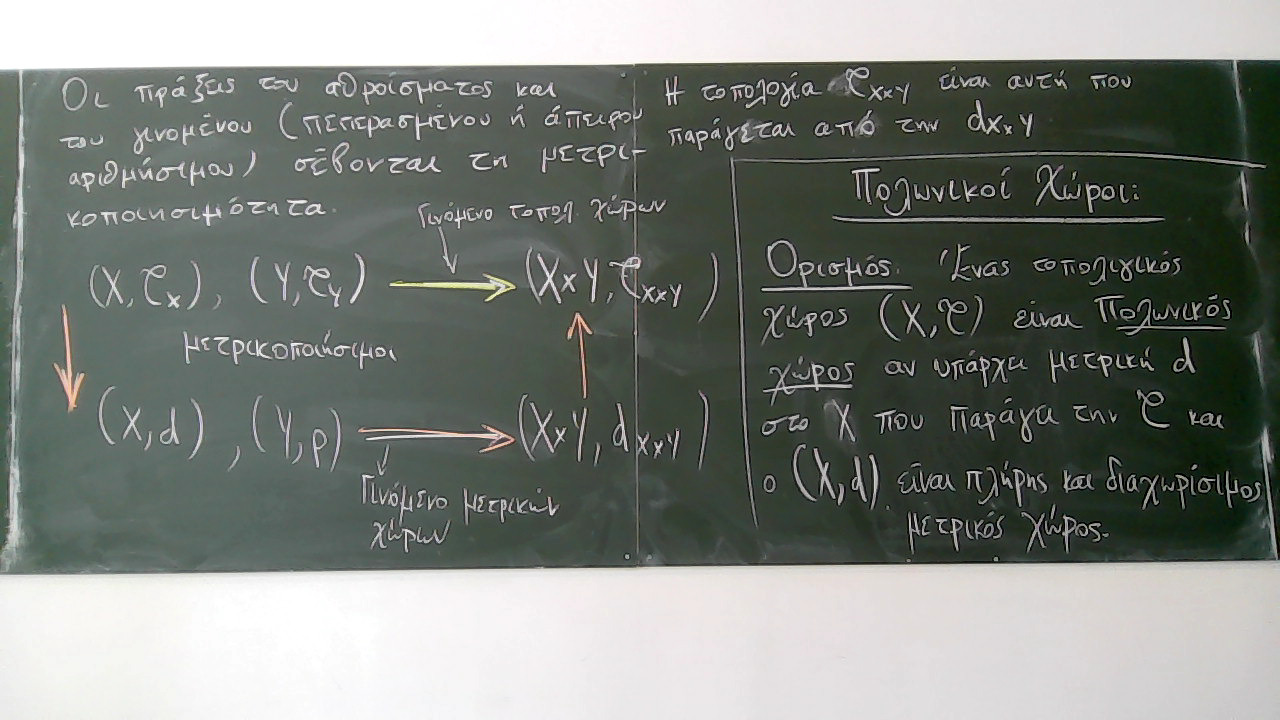 Οι πράξεις του αθροίσματος και
του γινομένου (πεπερασμένου ή άπειρου
αριθμήσιμου) σέβονται τη μετρι-
κοποιησιμότητα.
Γινόμενο τοπολ. χώρων
(X, τ_X), (Y, τ_Y) → (X×Y, τ_X×Y)
μετρικοποιήσιμοι
(X, d), (Y, ρ) ⇒ (X×Y, d_X×Y)
Γινόμενο μετρικών
χώρων
Η τοπολογία τ_X×Y είναι αυτή που
παράγεται από την d_X×Y
Πολωνικοί Χώροι:
Ορισμός: Ένας τοπολιγικός
χώρος (X, τ) είναι Πολωνικός
χώρος αν υπάρχει μετρική d
στο X που παράγει την τ και
ο (X, d) είναι πλήρης και διαχωρίσιμος
μετρικός χώρος.